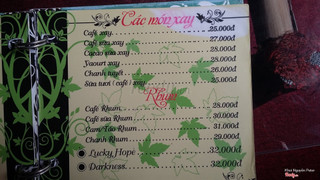 Các món xay
Café xay 25.000đ
Café sữa xay 27.000đ
Cacao sữa xay 28.000đ
Yaourt xay 26.000đ
Chanh tuyết 26.000đ
Sữa tươi (café) xay 28.000đ
Rhum
Café Rhum 28.000đ
Café sữa Rhum 30.000đ
Cam Táo Rhum 31.000đ
Chanh Rhum 29.000đ
Lucky Hope 32.000đ
Darkness 32.000đ